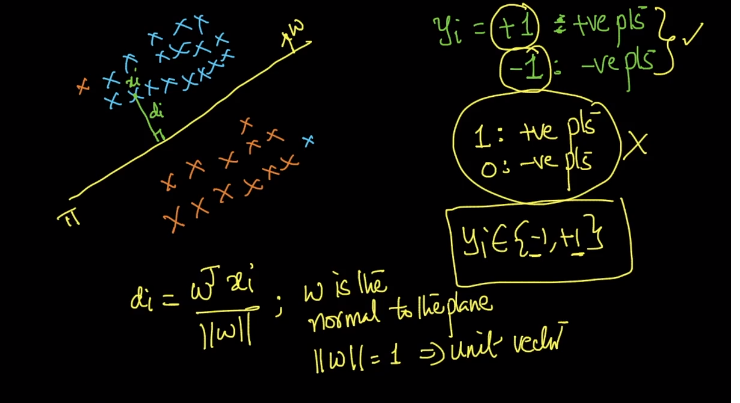 w
yi = +1 : +ve pts
-1 : -ve pts
xi
di
1 : +ve pts
0 : -ve pts
π
yi ∈ {-1, +1}
di = wᵀxi / ||w|| ; w is the
normal to the plane
||w|| = 1 ⇒ unit vect